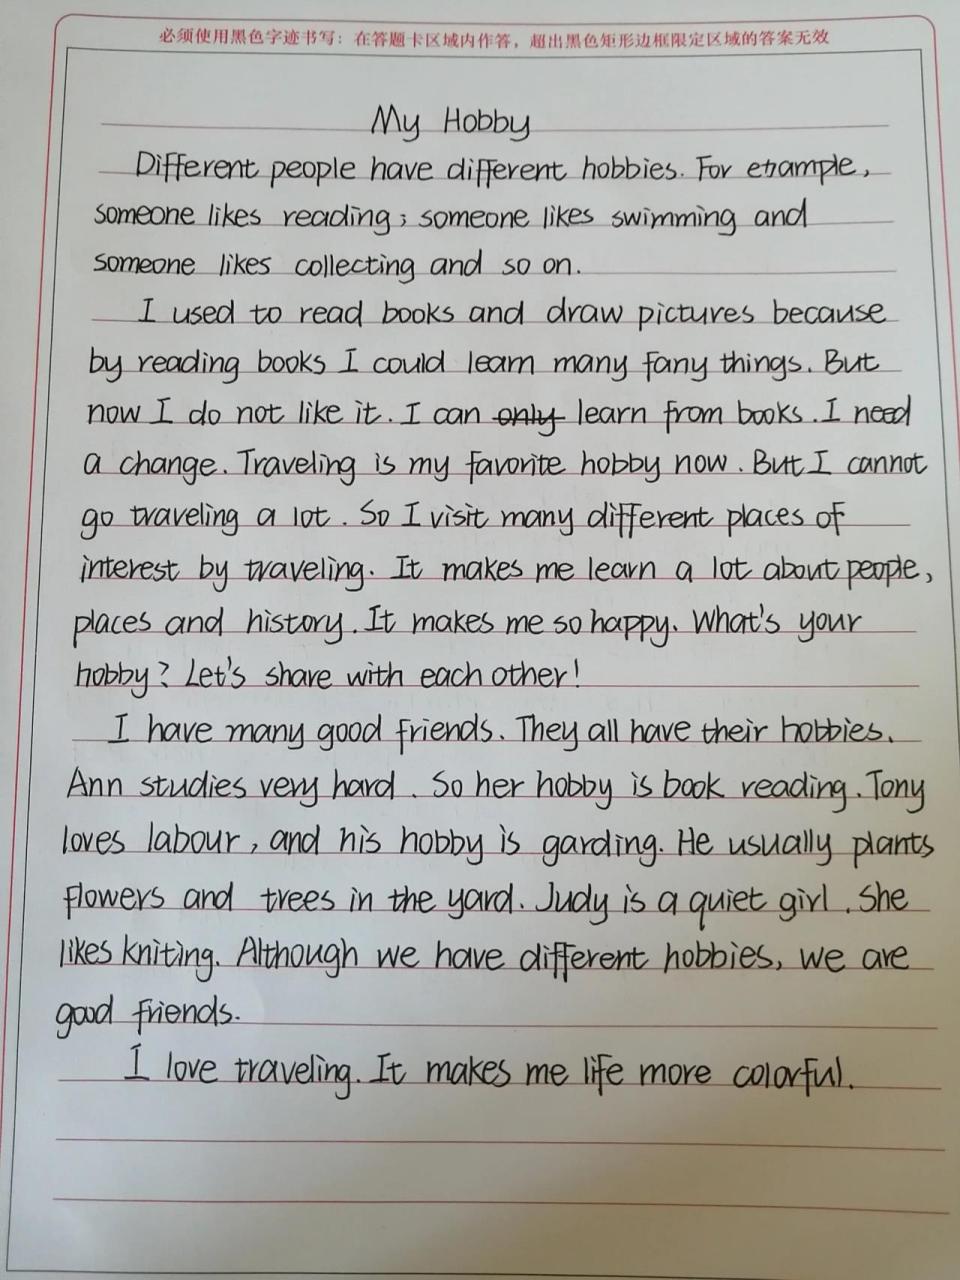 必须使用黑色字迹书写：在答题卡区域内作答，超出黑色矩形边框限定区域的答案无效
My Hobby
Different people have different hobbies. For example,
someone likes reading; someone likes swimming and
someone likes collecting and so on.
I used to read books and draw pictures because
by reading books I could learn many fany things. But
now I do not like it. I can only learn from books. I need
a change. Traveling is my favorite hobby now. But I cannot
go traveling a lot. So I visit many different places of
interest by traveling. It makes me learn a lot about people,
places and history. It makes me so happy. What's your
hobby? Let's share with each other!
I have many good friends. They all have their hobbies.
Ann studies very hard. So her hobby is book reading. Tony
loves labour, and his hobby is garding. He usually plants
flowers and trees in the yard. Judy is a quiet girl. She
likes kniting. Although we have different hobbies, we are
good friends.
I love traveling. It makes me life more colorful.